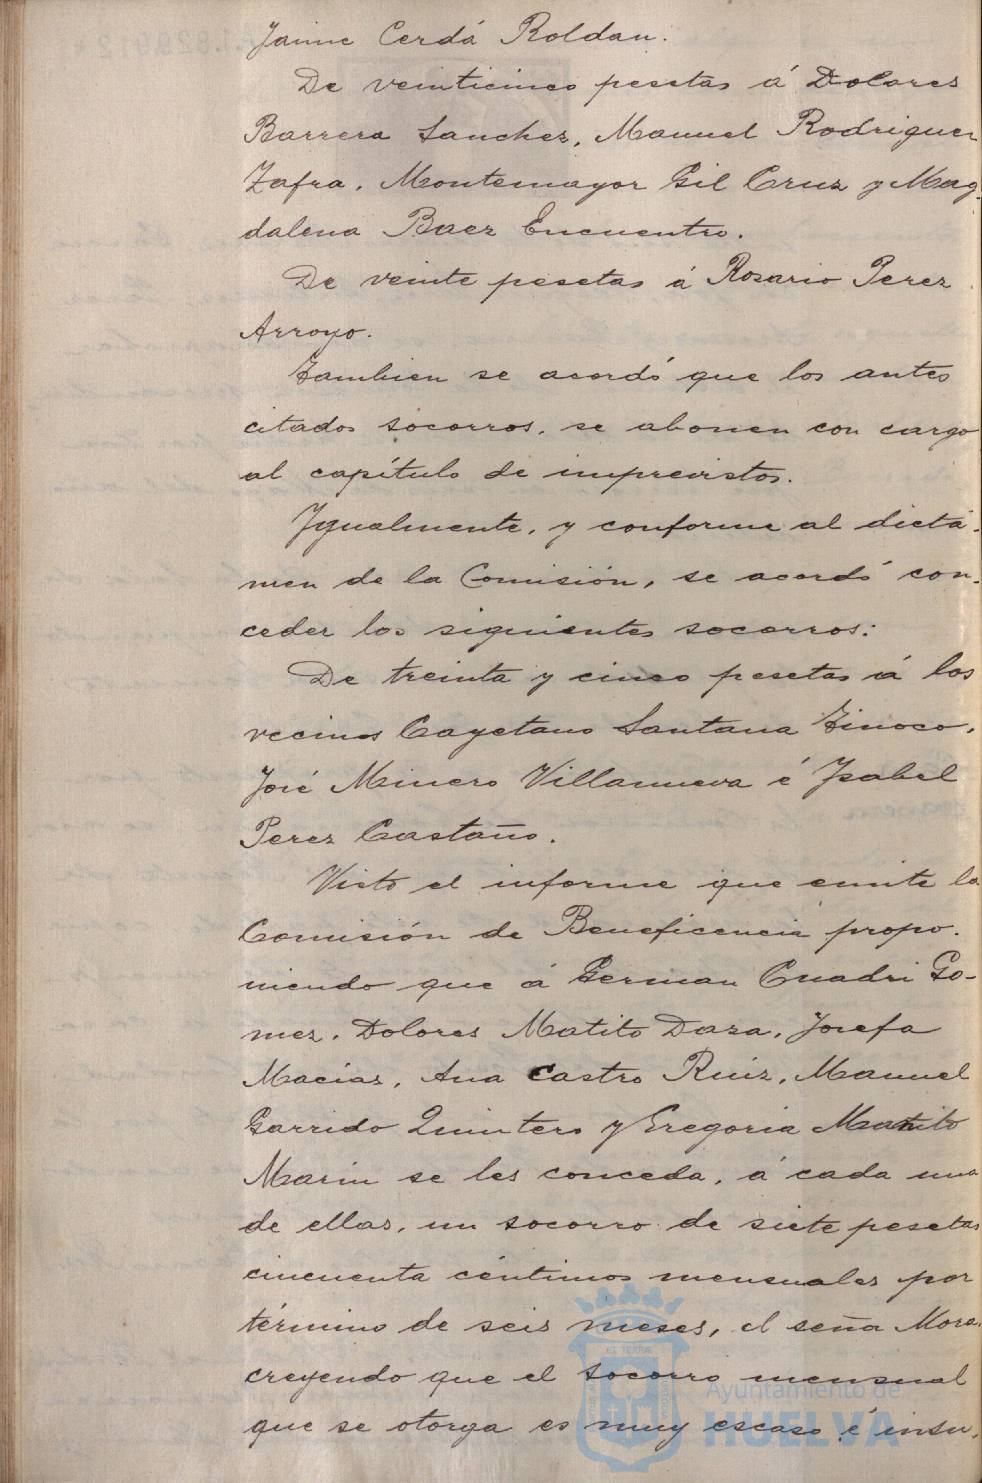 Jaime Cerdá Roldan.
De veinticinco pesetas á Dolores
Barrera Sanchez, Manuel Rodriguez
Zafra, Montemayor Gil Cruz y Mag-
dalena Baez Encuentro.
De veinte pesetas á Rosario Perez
Arroyo.
Tambien se acordó que los antes
citados socorros, se abonen con cargo
al capítulo de imprevistos.
Igualmente, y conforme al dictá-
men de la Comisión, se acordó con-
ceder los siguientes socorros:
De treinta y cinco pesetas á los
vecinos Cayetano Santana Tinoco,
José Minero Villanueva é Isabel
Perez Castaño.
Visto el informe que emite la
Comisión de Beneficencia propo-
niendo que á German Cuadri Go-
mez, Dolores Matito Daza, Josefa
Macias, Ana Castro Ruiz, Manuel
Garrido Quintero y Gregoria Matito
Marin se les conceda, á cada una
de ellas, un socorro de siete pesetas
cincuenta céntimos mensuales por
término de seis meses, el seña Mora,
creyendo que el socorro mensual
que se otorga es muy escaso é insu-
Ayuntamiento de
HUELVA